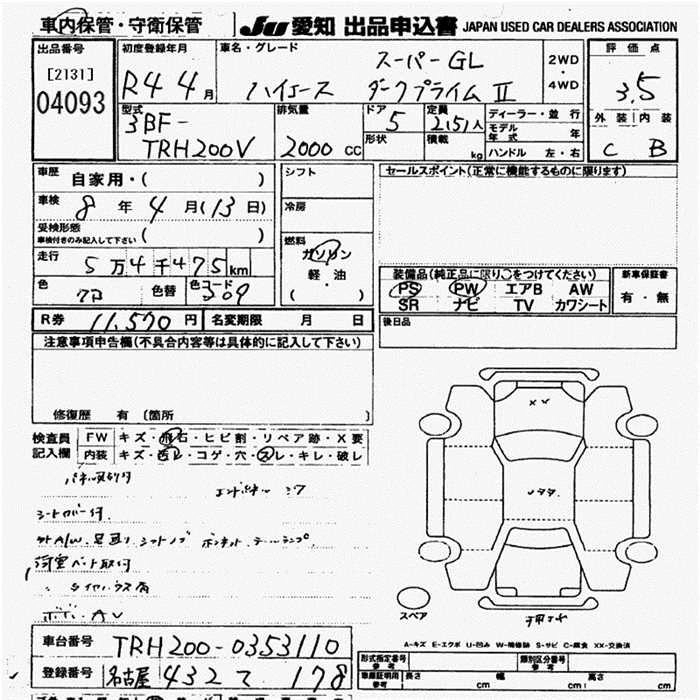 車内保管・守衛保管
JU 愛知 出品申込書 JAPAN USED CAR DEALERS ASSOCIATION
出品番号 初度登録年月 車名・グレード 評価点
[2131] 04093
R4 4月
ハイエース スーパーGL ダークプライムⅡ
2WD・4WD
3.5
外装 内装
C B
型式 3BF-TRH200V
排気量 2000 CC
ドア 5 形状
定員 2(5)人 積載 kg
ディーラー・並行
モデル年式 年
ハンドル 左・右
車歴 自家用・( )
シフト
セールスポイント(正常に機能するものに限ります)
車検 8年4月(13日)
冷房
受検形態 車検付きのみ記入して下さい ( )
燃料 ガソリン 軽・油 ( ・ )
走行 5万4千475km
色 クロ 色替 色コード 209
装備品(純正品に限り○をつけてください) 新車保証書
PS PW エアB AW 有・無
SR ナビ TV カワシート
R券 11,570円 名変期限 月 日
後日品
注意事項申告欄(不具合内容等は具体的に記入して下さい)
修復歴 有 〔箇所 〕
検査員記入欄
FW キズ・飛石・ヒビ割・リペア跡・X要
内装 キズ・西レ・コゲ・穴・スレ・キレ・破レ
シートカバー付
外A/W
スペア
A-キズ E-エクボ U-凹み W-補修跡 S-サビ C-腐食 XX-交換済
車台番号 TRH200-0353110
登録番号 名古屋 432 て 178
形式指定番号 参考 類別区分番号 参考
車庫証明用 参考 長さ cm 幅 cm 高さ cm